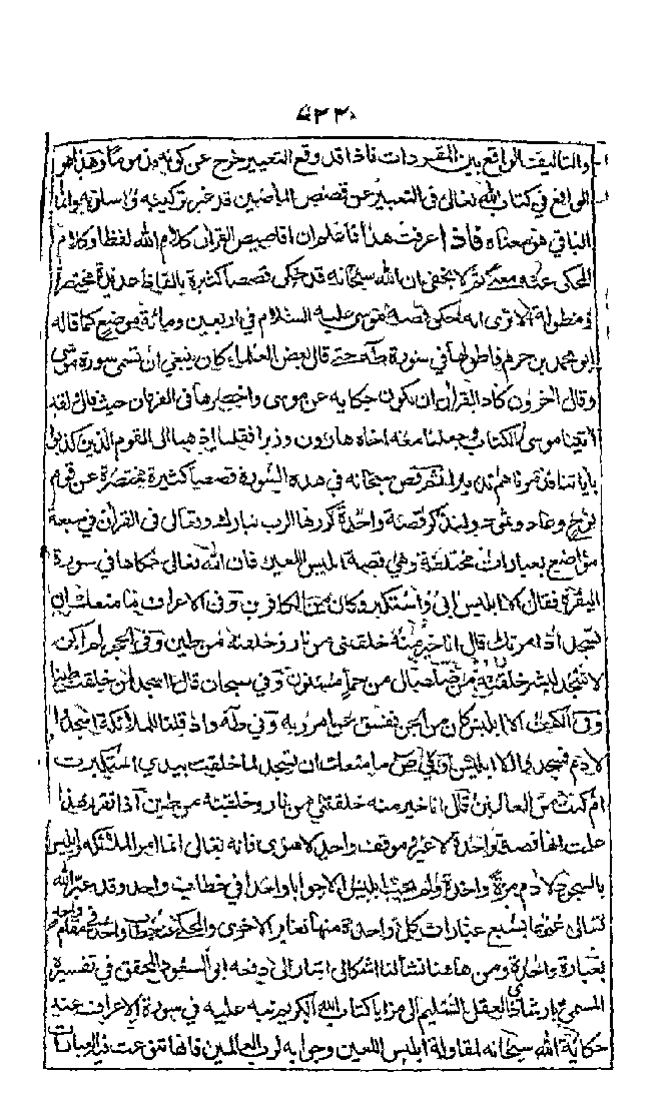 ٢٣٠
والتاليف الواقع بين المفردات فاذا قد وقع التغيير خرج عن كونه وهذا هو
الواقع في كتاب الله تعالى في التعبير عن قصص الماضين قد غير تركيبه واسلوبه وانما
الباقي هو معناه فاذا عرفت هذا فاعلم ان اقاصيص القران كلام الله لفظا وكلام
المحكي عنه معنى لا يخفى ان الله سبحانه قد حكى قصصا كثيرة بالفاظ عديدة مختصرة
ومطولة الا ترى انه حكى قصة موسى عليه السلام في اربعين ومائة موضع كما قاله
ابو محمد بن حزم فاطولها في سورة طه حتى قال بعض العلماء كان ينبغي ان تسمى سورة موسى
وقال اخرون كاد القران ان يكون حكايه عن موسى واخصارها في الفرقان حيث قال لقد
اتينا موسى الكتاب وجعلنا معه اخاه هارون وزيرا فقلنا اذهبا الى القوم الذين كذبوا
باياتنا فدمرناهم تدميرا ثم قص سبحانه في هذه السورة قصصا كثيرة مختصرة عن قوم
نوح وعاد وثمود ولنذكر قصة واحدة كررها الرب تبارك وتعالى في القران في سبعة
مواضع بعبارات مختلفة وهي قصة ابليس اللعين فان الله تعالى حكاها في سورة
البقرة فقال الا ابليس ابى واستكبر وكان من الكافرين وفي الاعراف ما منعك ان
تسجد اذ امرتك قال انا خير منه خلقتني من نار وخلقته من طين وفي الحجر لم اكن
لاسجد لبشر خلقته من صلصال من حمإ مسنون وفي سبحان قال ااسجد لمن خلقت طينا
وفي الكهف الا ابليس كان من الجن ففسق عن امر ربه وفي طه واذ قلنا للملائكة اسجدوا
لادم فسجدوا الا ابليس وفي ص ما منعك ان تسجد لما خلقت بيدي استكبرت
ام كنت من العالين قال انا خير منه خلقتني من نار وخلقته من طين اذا تقرر هذا
علمت انها قصة واحدة لا غير وموقف واحد لا سوى فانه تعالى انما امر الملائكة وابليس
بالسجود لادم مرة واحدة ولم يجب ابليس الا جوابا واحدا في خطاب واحد وقد عبر الله
تعالى عنها بسبع عبارات كل واحدة منها تغاير الاخرى والمحكي خطاب واحد في مقام واحد
بعبارة واحدة ومن هاهنا نشأ لنا اشكال اشار الى دفعه ابو السعود المحقق في تفسيره
المسمى بارشاد العقل السليم الى مزايا كتاب الله الكريم نبه عليه في سورة الاعراف عند
حكاية الله سبحانه لمقاولة ابليس اللعين وجوابه لرب العالمين فانها تنوعت فيه العبارات